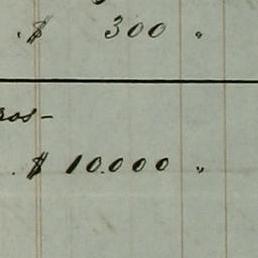 .$ 300 "
ros-
.$ 10.000 "